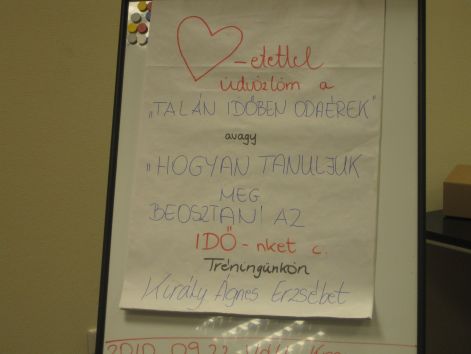 -etettel
üdvözlöm a
„TALÁN IDŐBEN ODAÉREK"
avagy
„HOGYAN TANULJUK
MEG
BEOSZTANI AZ
IDŐ-nket c.
Tréningünkön
Király Ágnes Erzsébet
2010. 09. 22.